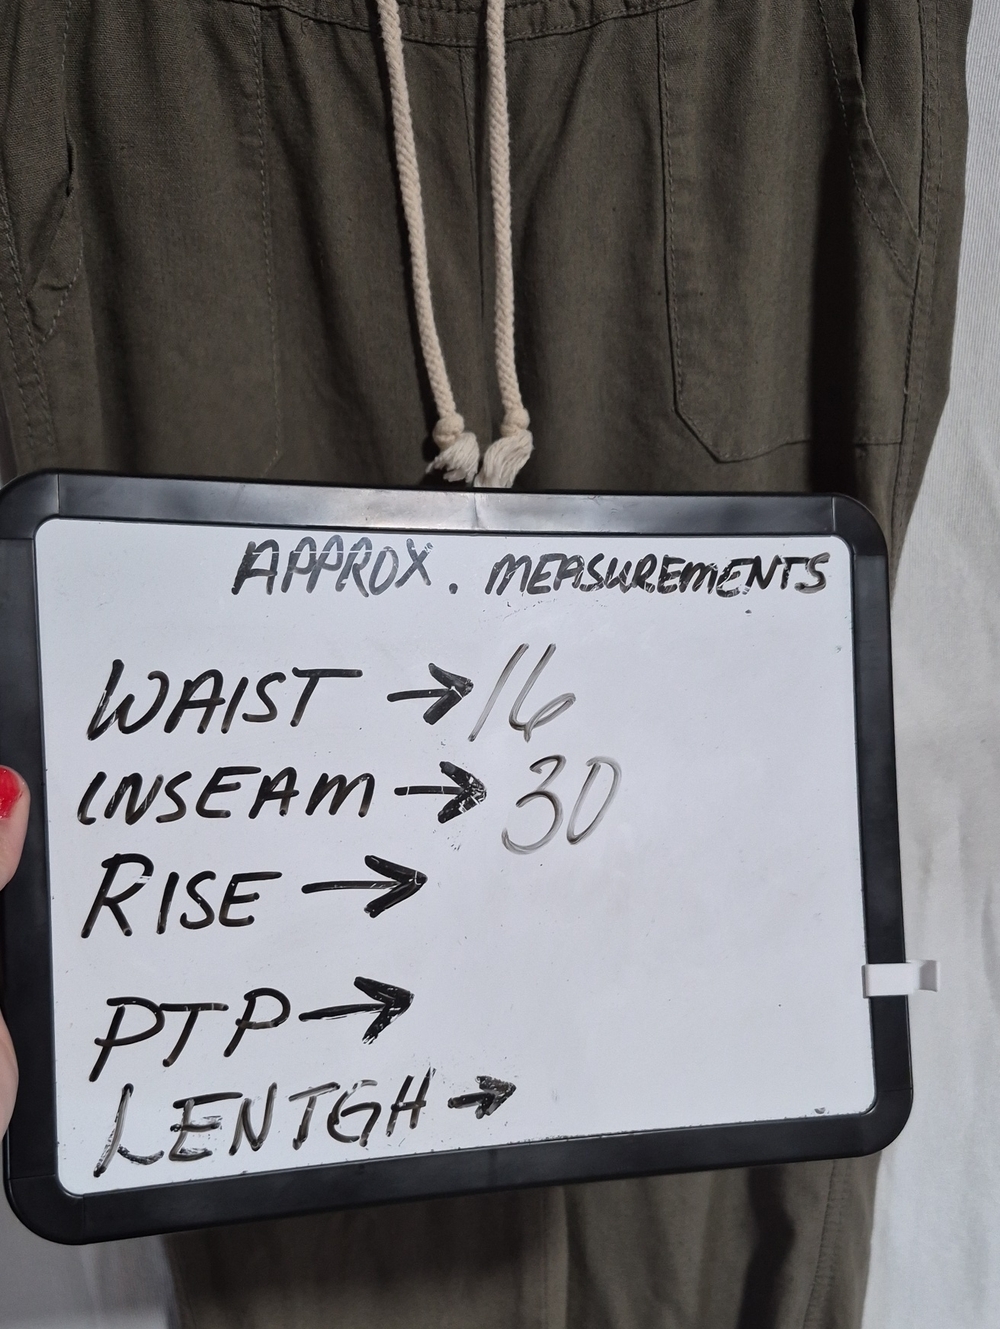 APPROX. MEASUREMENTS
WAIST → 16
INSEAM → 30
RISE →
PTP →
LENTGH →